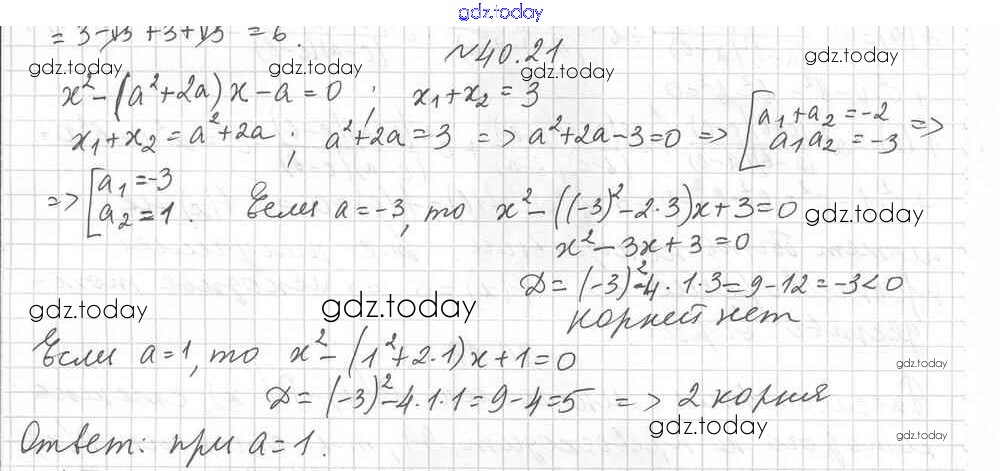 gdz.today
= 3 - √3 + 3 + √3 = 6.
№40.21
gdz.today gdz.today gdz.today gdz.today
x² - (a² + 2a)x - a = 0 ; x₁ + x₂ = 3
x₁ + x₂ = a² + 2a ; a² + 2a = 3 => a² + 2a - 3 = 0 => [a₁ + a₂ = -2 =>
a₁a₂ = -3
=> [a₁ = -3
a₂ = 1. Если a = -3, то x² - ((-3)² - 2·3)x + 3 = 0 gdz.today
x² - 3x + 3 = 0
Д = (-3)² - 4·1·3 = 9 - 12 = -3 < 0
gdz.today gdz.today корней нет
Если a = 1, то x² - (1² + 2·1)x + 1 = 0 gdz.today
Д = (-3)² - 4·1·1 = 9 - 4 = 5 => 2 корня
gdz.today gdz.today
Ответ: при a = 1.